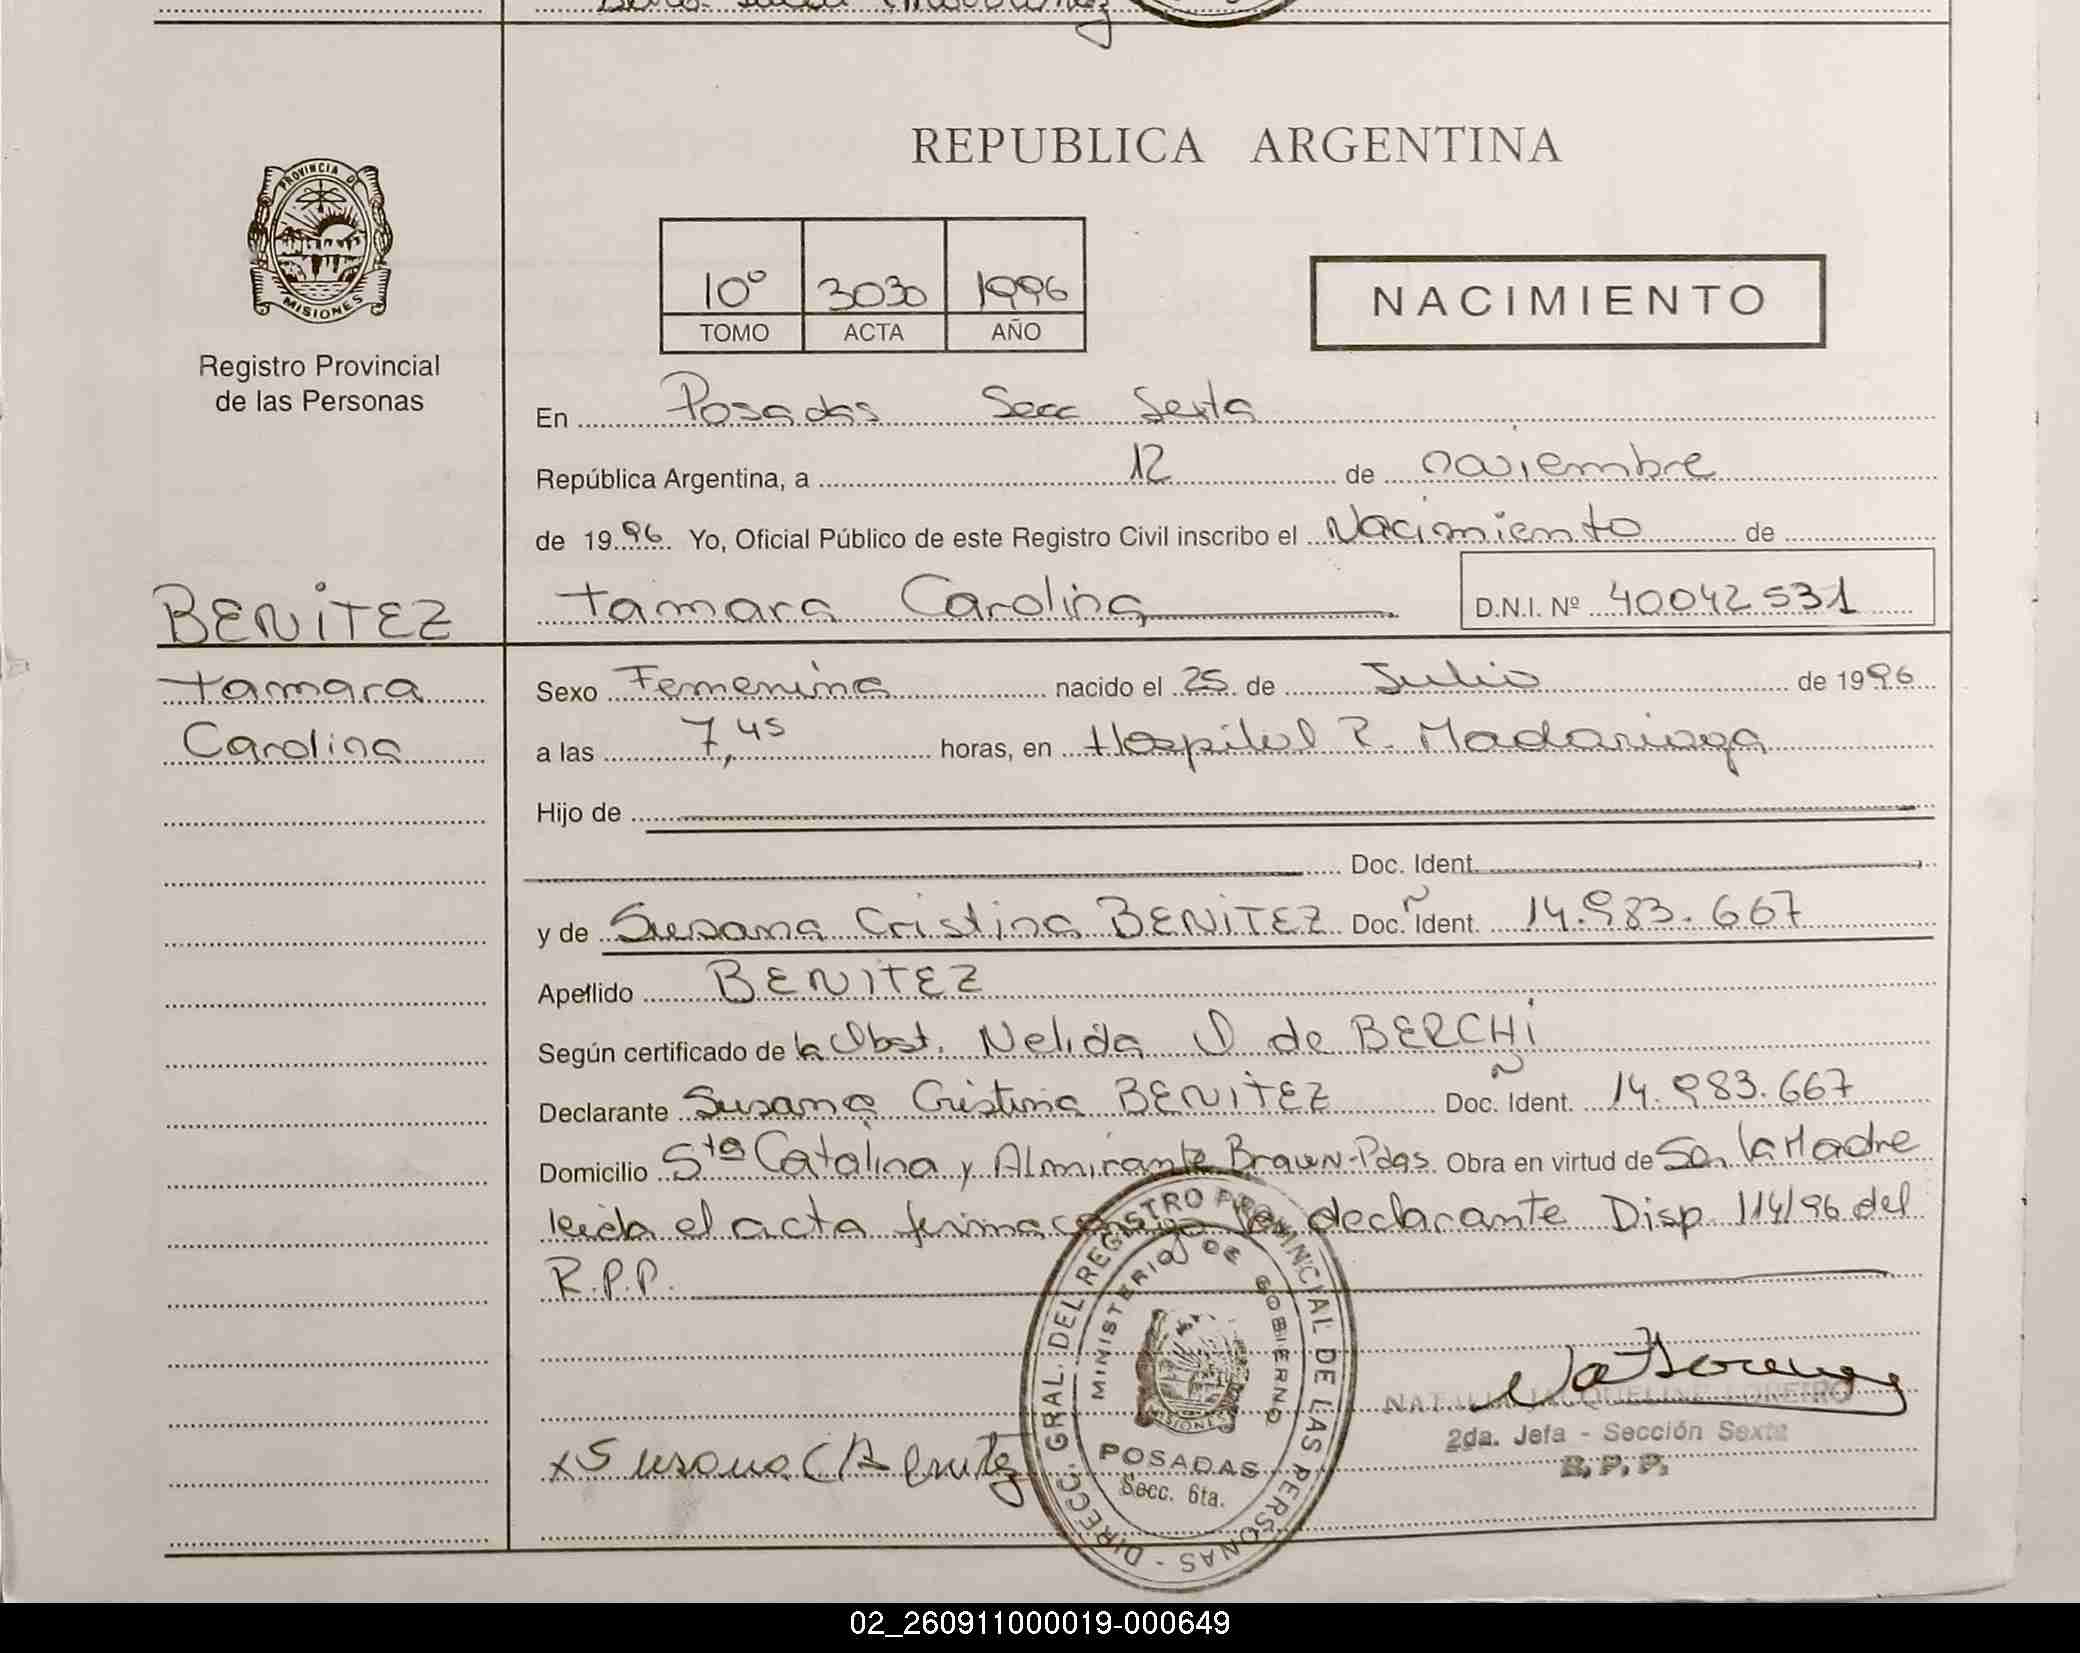 REPUBLICA ARGENTINA
PROVINCIA DE
MISIONES
Registro Provincial
de las Personas
10º 3030 1996
TOMO ACTA AÑO
NACIMIENTO
En Posadas Secc Sexta
República Argentina, a 12 de noviembre
de 1996 Yo, Oficial Público de este Registro Civil inscribo el Nacimiento de
BENITEZ
Tamara Carolina
D.N.I. Nº 40042531
Tamara
Carolina
Sexo Femenina nacido el 25 de Julio de 1996
a las 7,45 horas, en Hospital R. Madariaga
Hijo de
Doc. Ident.
y de Susana Cristina BENITEZ Doc. Ident. 14.983.667
Apellido BENITEZ
Según certificado de la Obst. Nelida O de BERCHI
Declarante Susana Cristina BENITEZ Doc. Ident. 14.983.667
Domicilio Sta Catalina y Almirante Brown-Pdas. Obra en virtud de Ser la Madre
leida el acta firma conmigo la declarante Disp 114/96 del
R.P.P.
DIRECC. GRAL. DEL REGISTRO PROVINCIAL DE LAS PERSONAS -
MINISTERIO DE GOBIERNO
MISIONES
POSADAS
Secc. 6ta.
x Susana C Benitez
2da. Jefa - Sección Sexta
R. P. P.
02_260911000019-000649